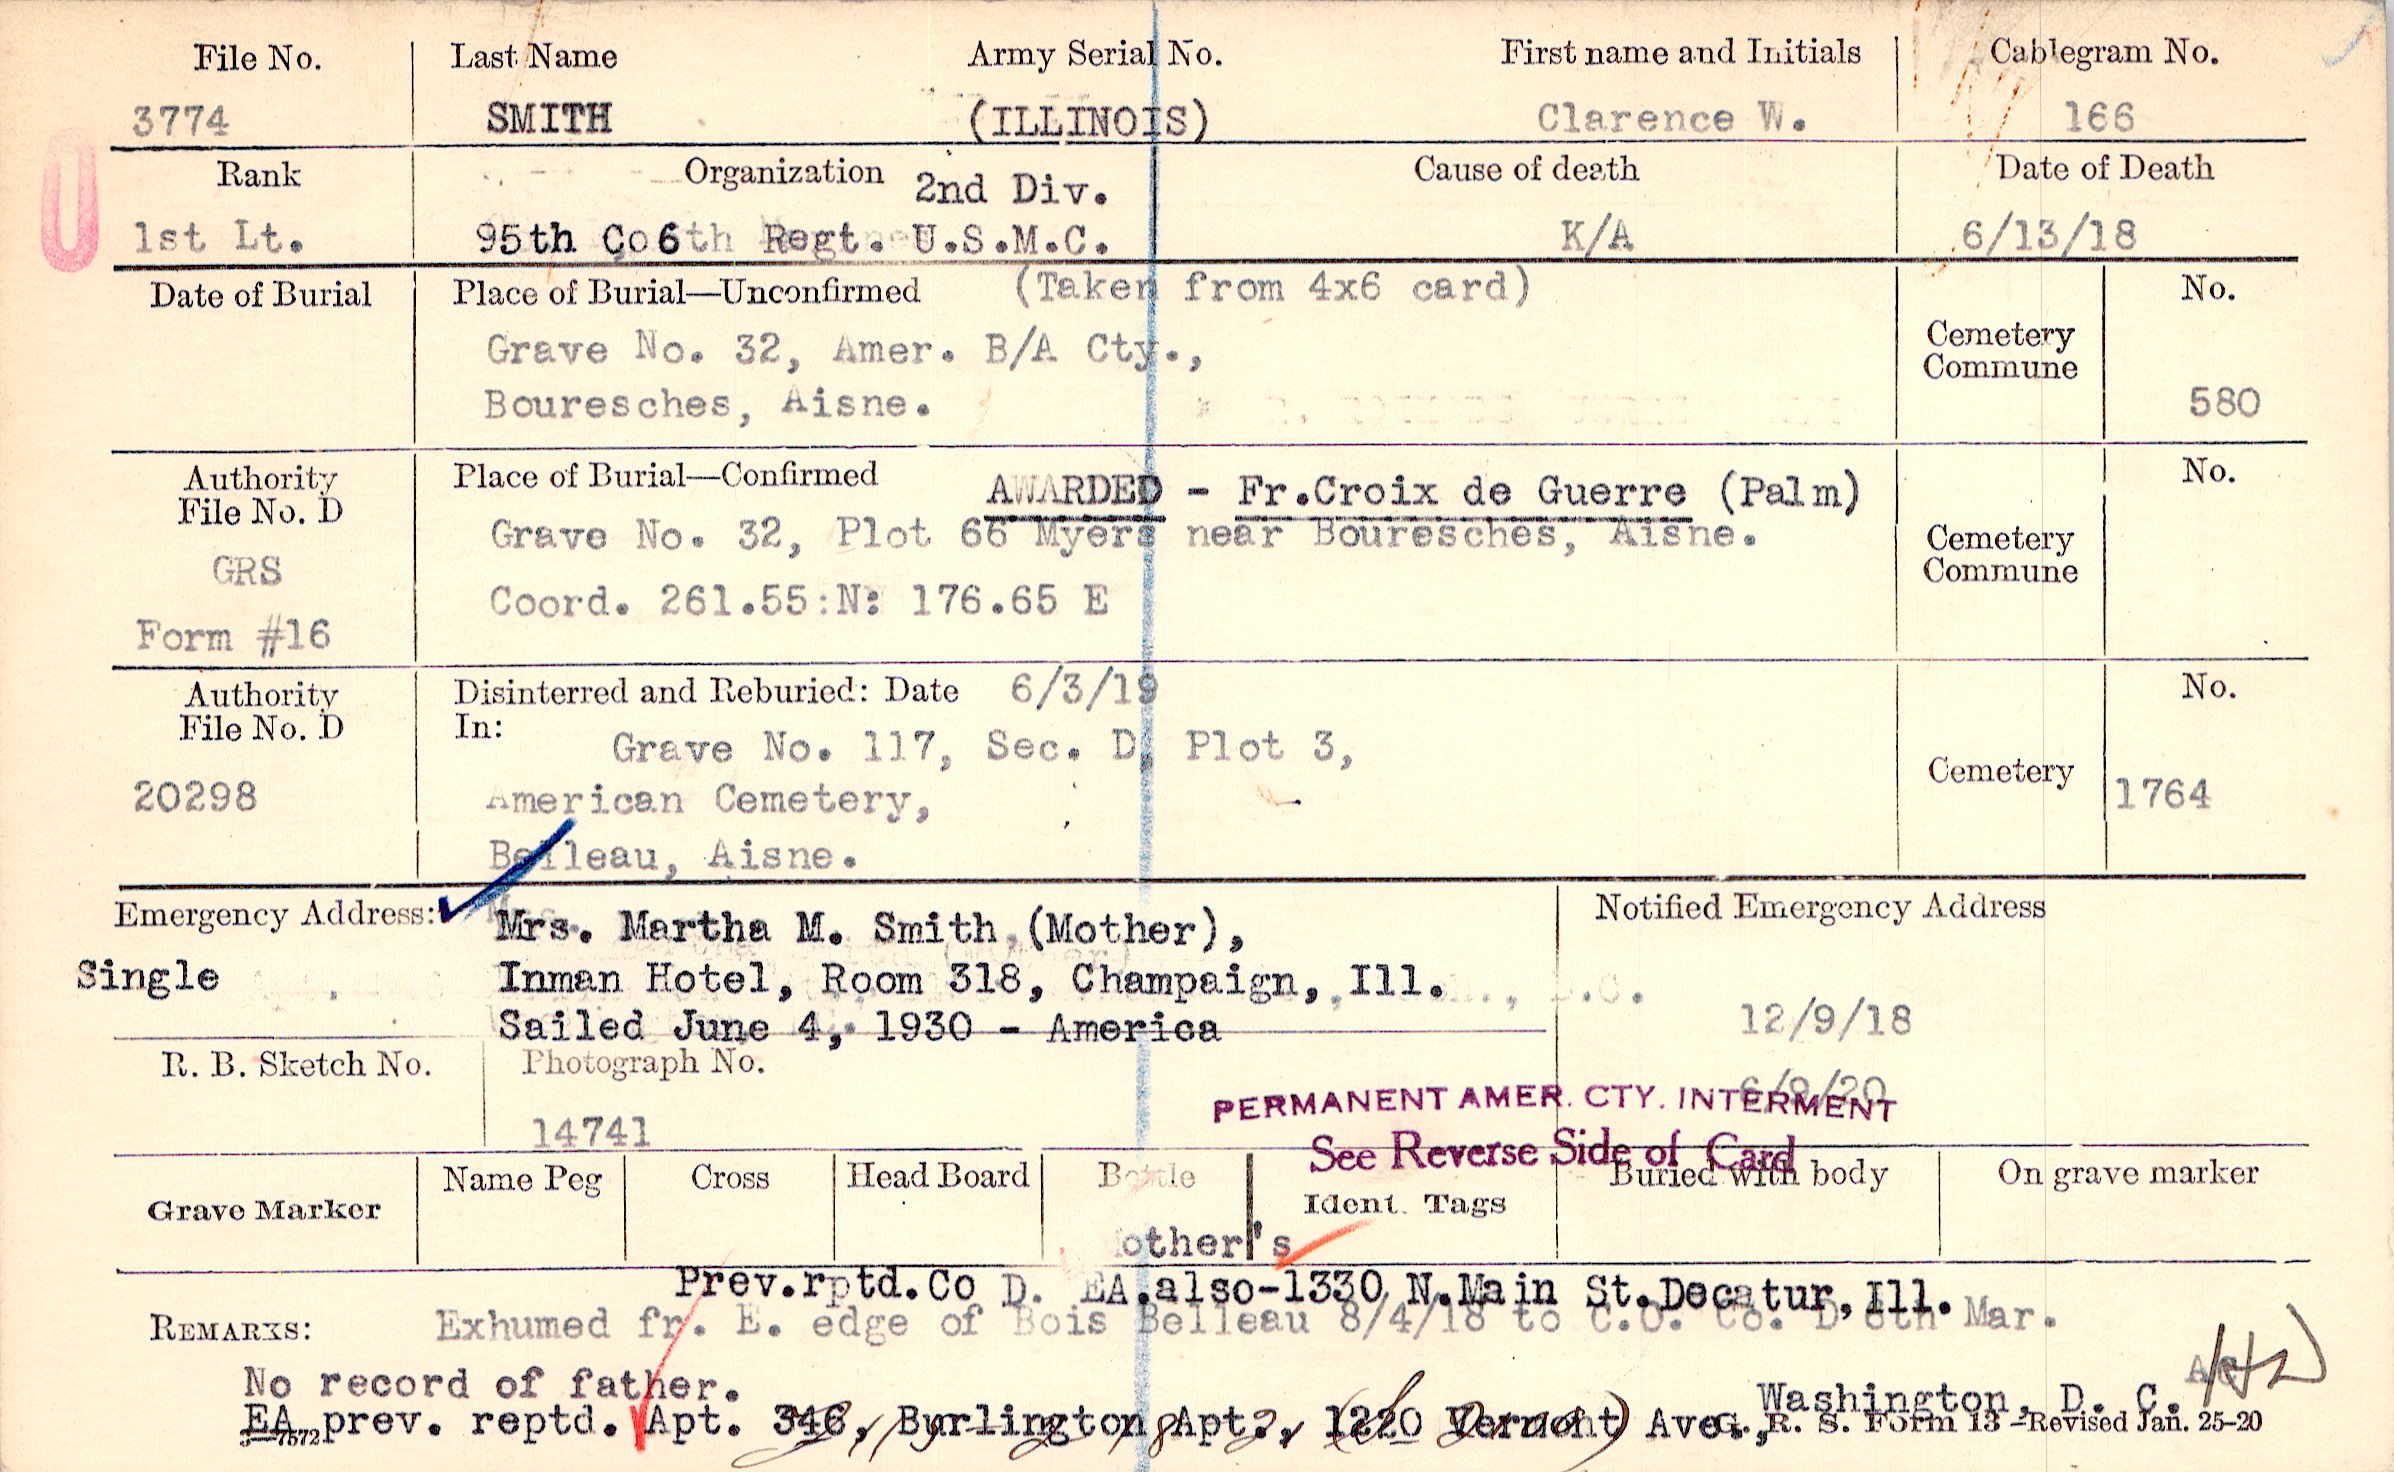 File No. Last Name Army Serial No. First name and Initials Cablegram No.
3774 SMITH (ILLINOIS) Clarence W. 166
Rank Organization 2nd Div. Cause of death Date of Death
1st Lt. 95th Co 6th Regt. U.S.M.C. K/A 6/13/18
Date of Burial Place of Burial—Unconfirmed (Taken from 4x6 card) No.
Grave No. 32, Amer. B/A Cty., Cemetery Commune
Bouresches, Aisne. 580
Authority File No. D Place of Burial—Confirmed AWARDED - Fr.Croix de Guerre (Palm) No.
Grave No. 32, Plot 66 Myers near Bouresches, Aisne. Cemetery Commune
GRS
Coord. 261.55:N: 176.65 E
Form #16
Authority File No. D Disinterred and Reburied: Date 6/3/19 No.
In: Grave No. 117, Sec. D, Plot 3,
20298 American Cemetery, Cemetery 1764
Belleau, Aisne.
Emergency Address: Mrs. Martha M. Smith (Mother), Notified Emergency Address
Single Inman Hotel, Room 318, Champaign, Ill.
Sailed June 4, 1930 - America 12/9/18
R. B. Sketch No. Photograph No. 6/8/20
PERMANENT AMER. CTY. INTERMENT
14741
See Reverse Side of Card
Grave Marker Name Peg Cross Head Board Bottle Ident. Tags Buried with body On grave marker
other's
Prev.rptd.Co D. EA.also-1330 N.Main St.Decatur, Ill.
REMARKS: Exhumed fr. E. edge of Bois Belleau 8/4/18 to C.O. Co. D 6th Mar.
No record of father.
EA prev. reptd. Apt. 346, Burlington Apt., 1220 Vermont Ave., Washington, D. C.
7572 G. R. S. Form 13 —Revised Jan. 25-20